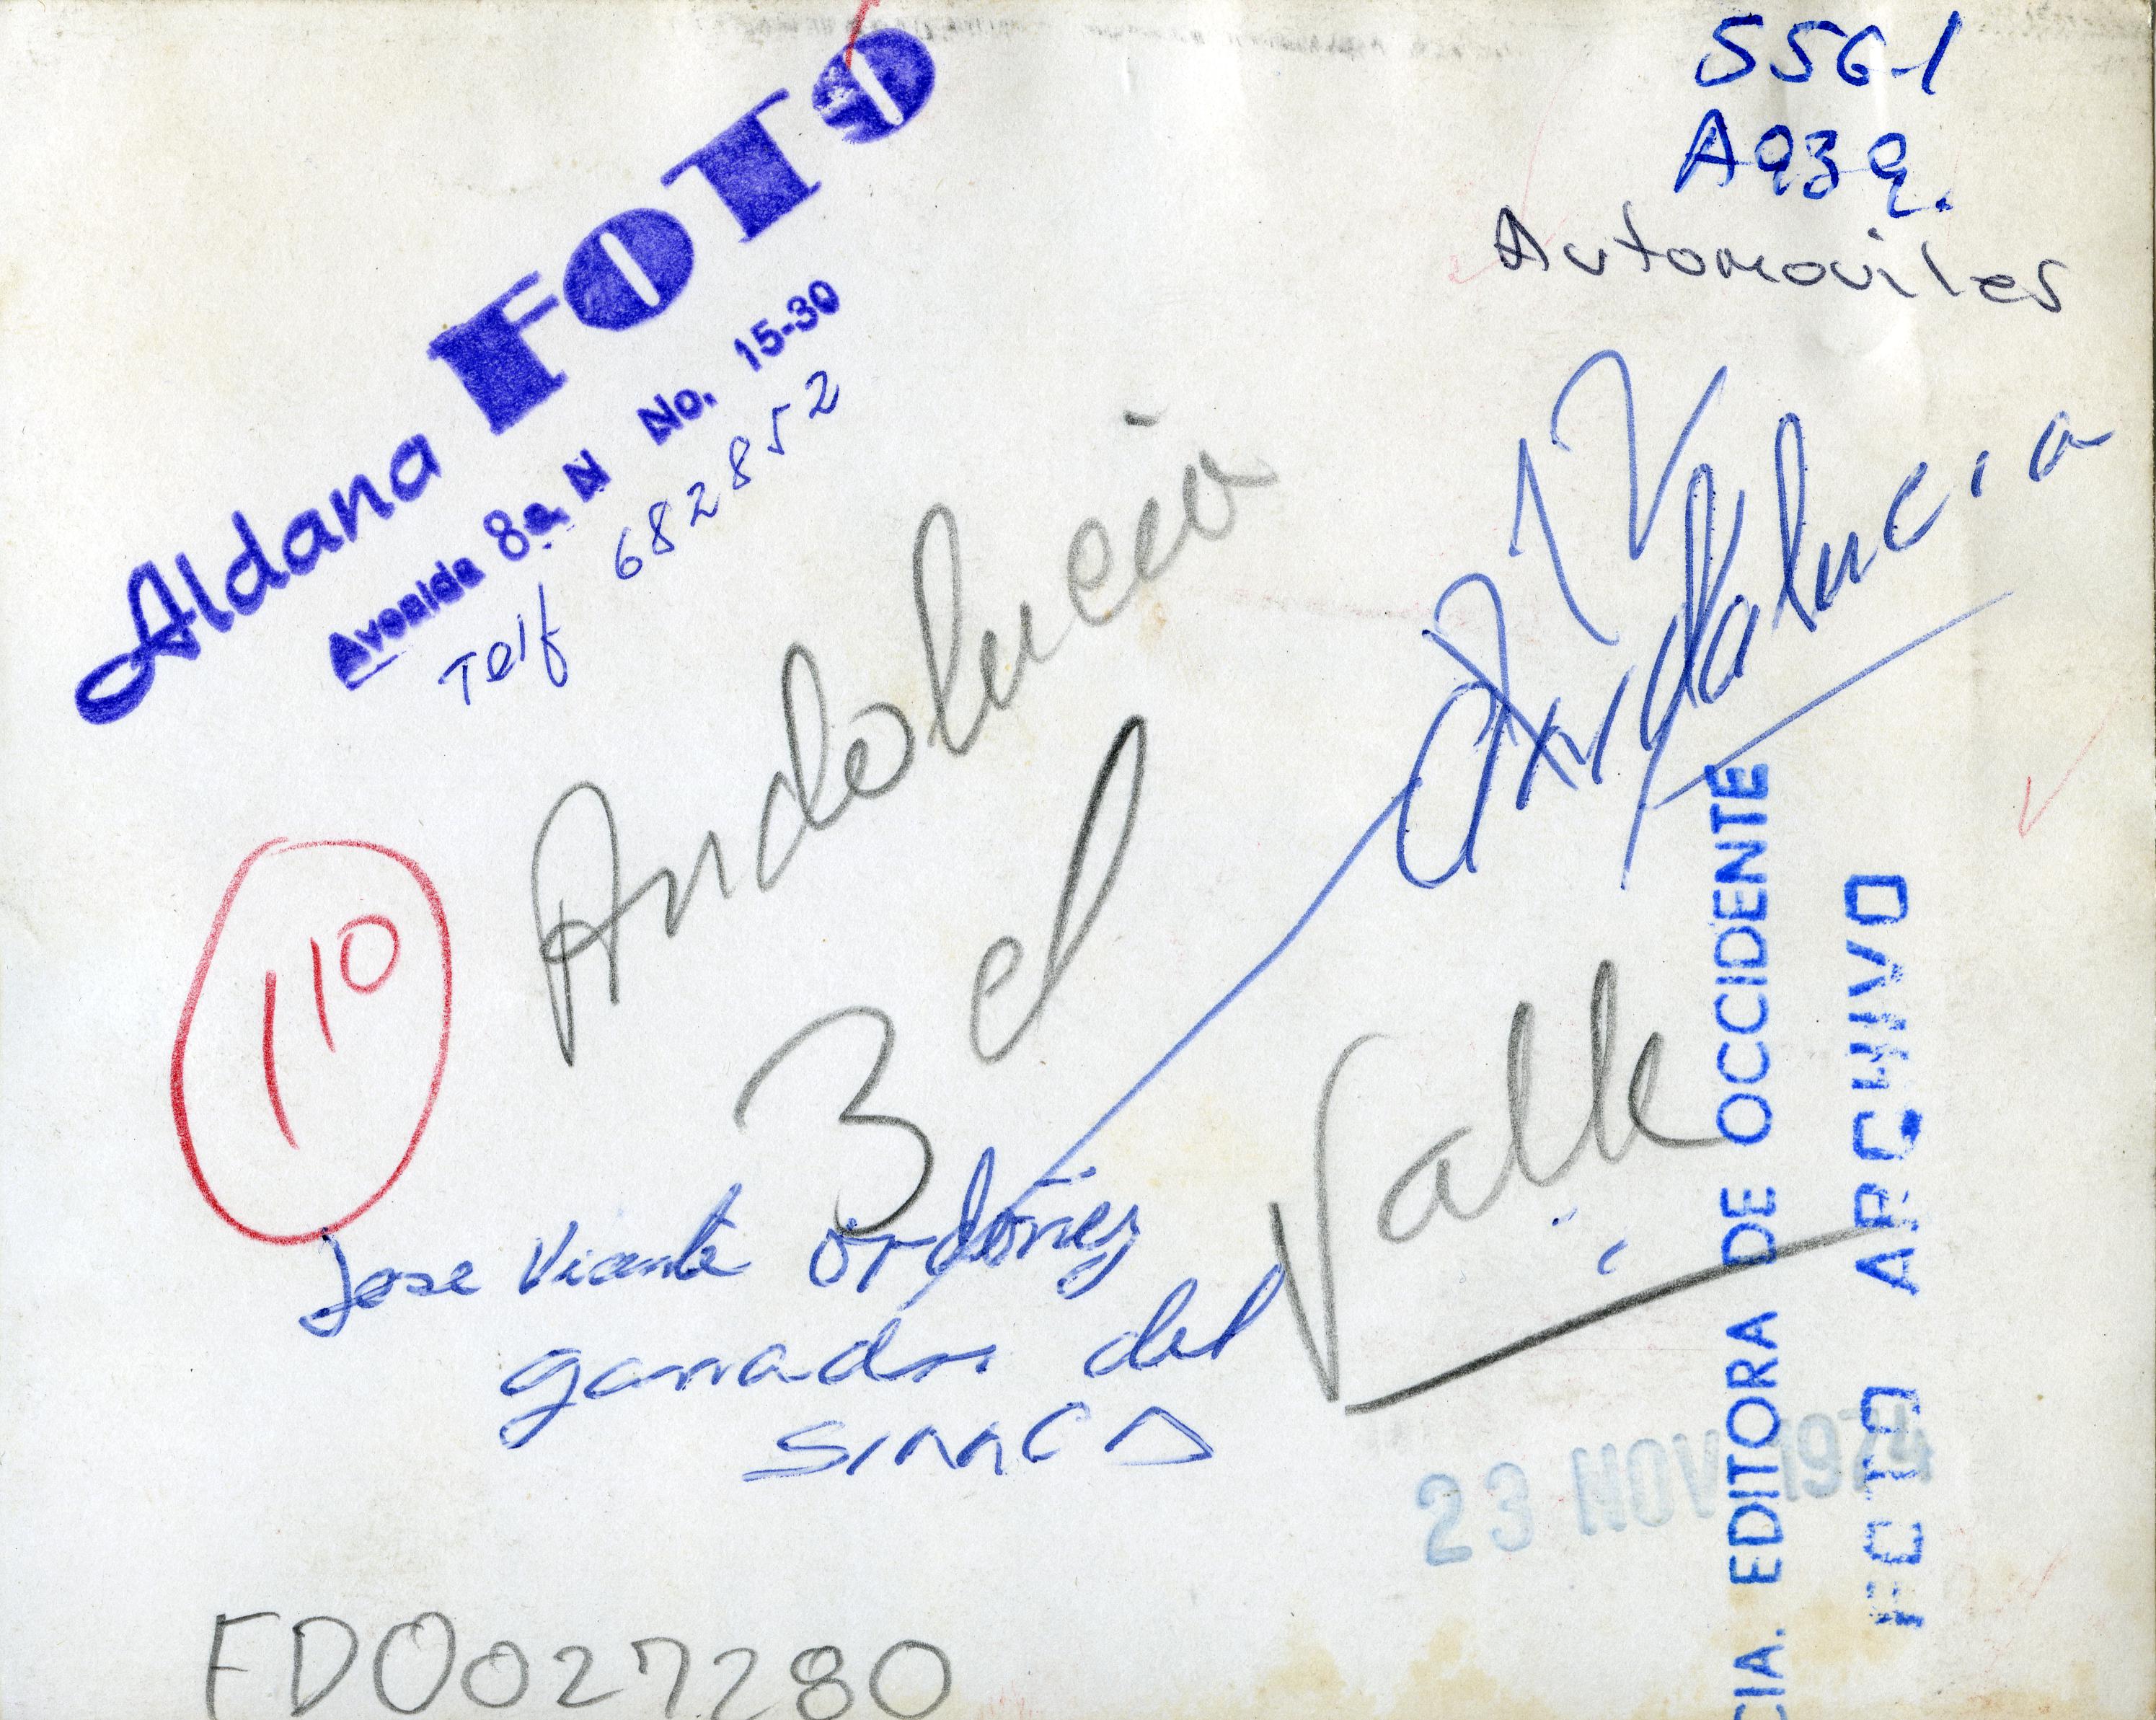 5561
A939.
Automoviles
Aldana FOTO
Avenida 8a. N No. 15-30
Telf 682852
12
Andalucia
Andalucia
3 el
Valle
110
Jose Vicente Ordóñez
ganador del
SIMCA
CIA. EDITORA DE OCCIDENTE
FOTO ARCHIVO
23 NOV 1974
FD0027280